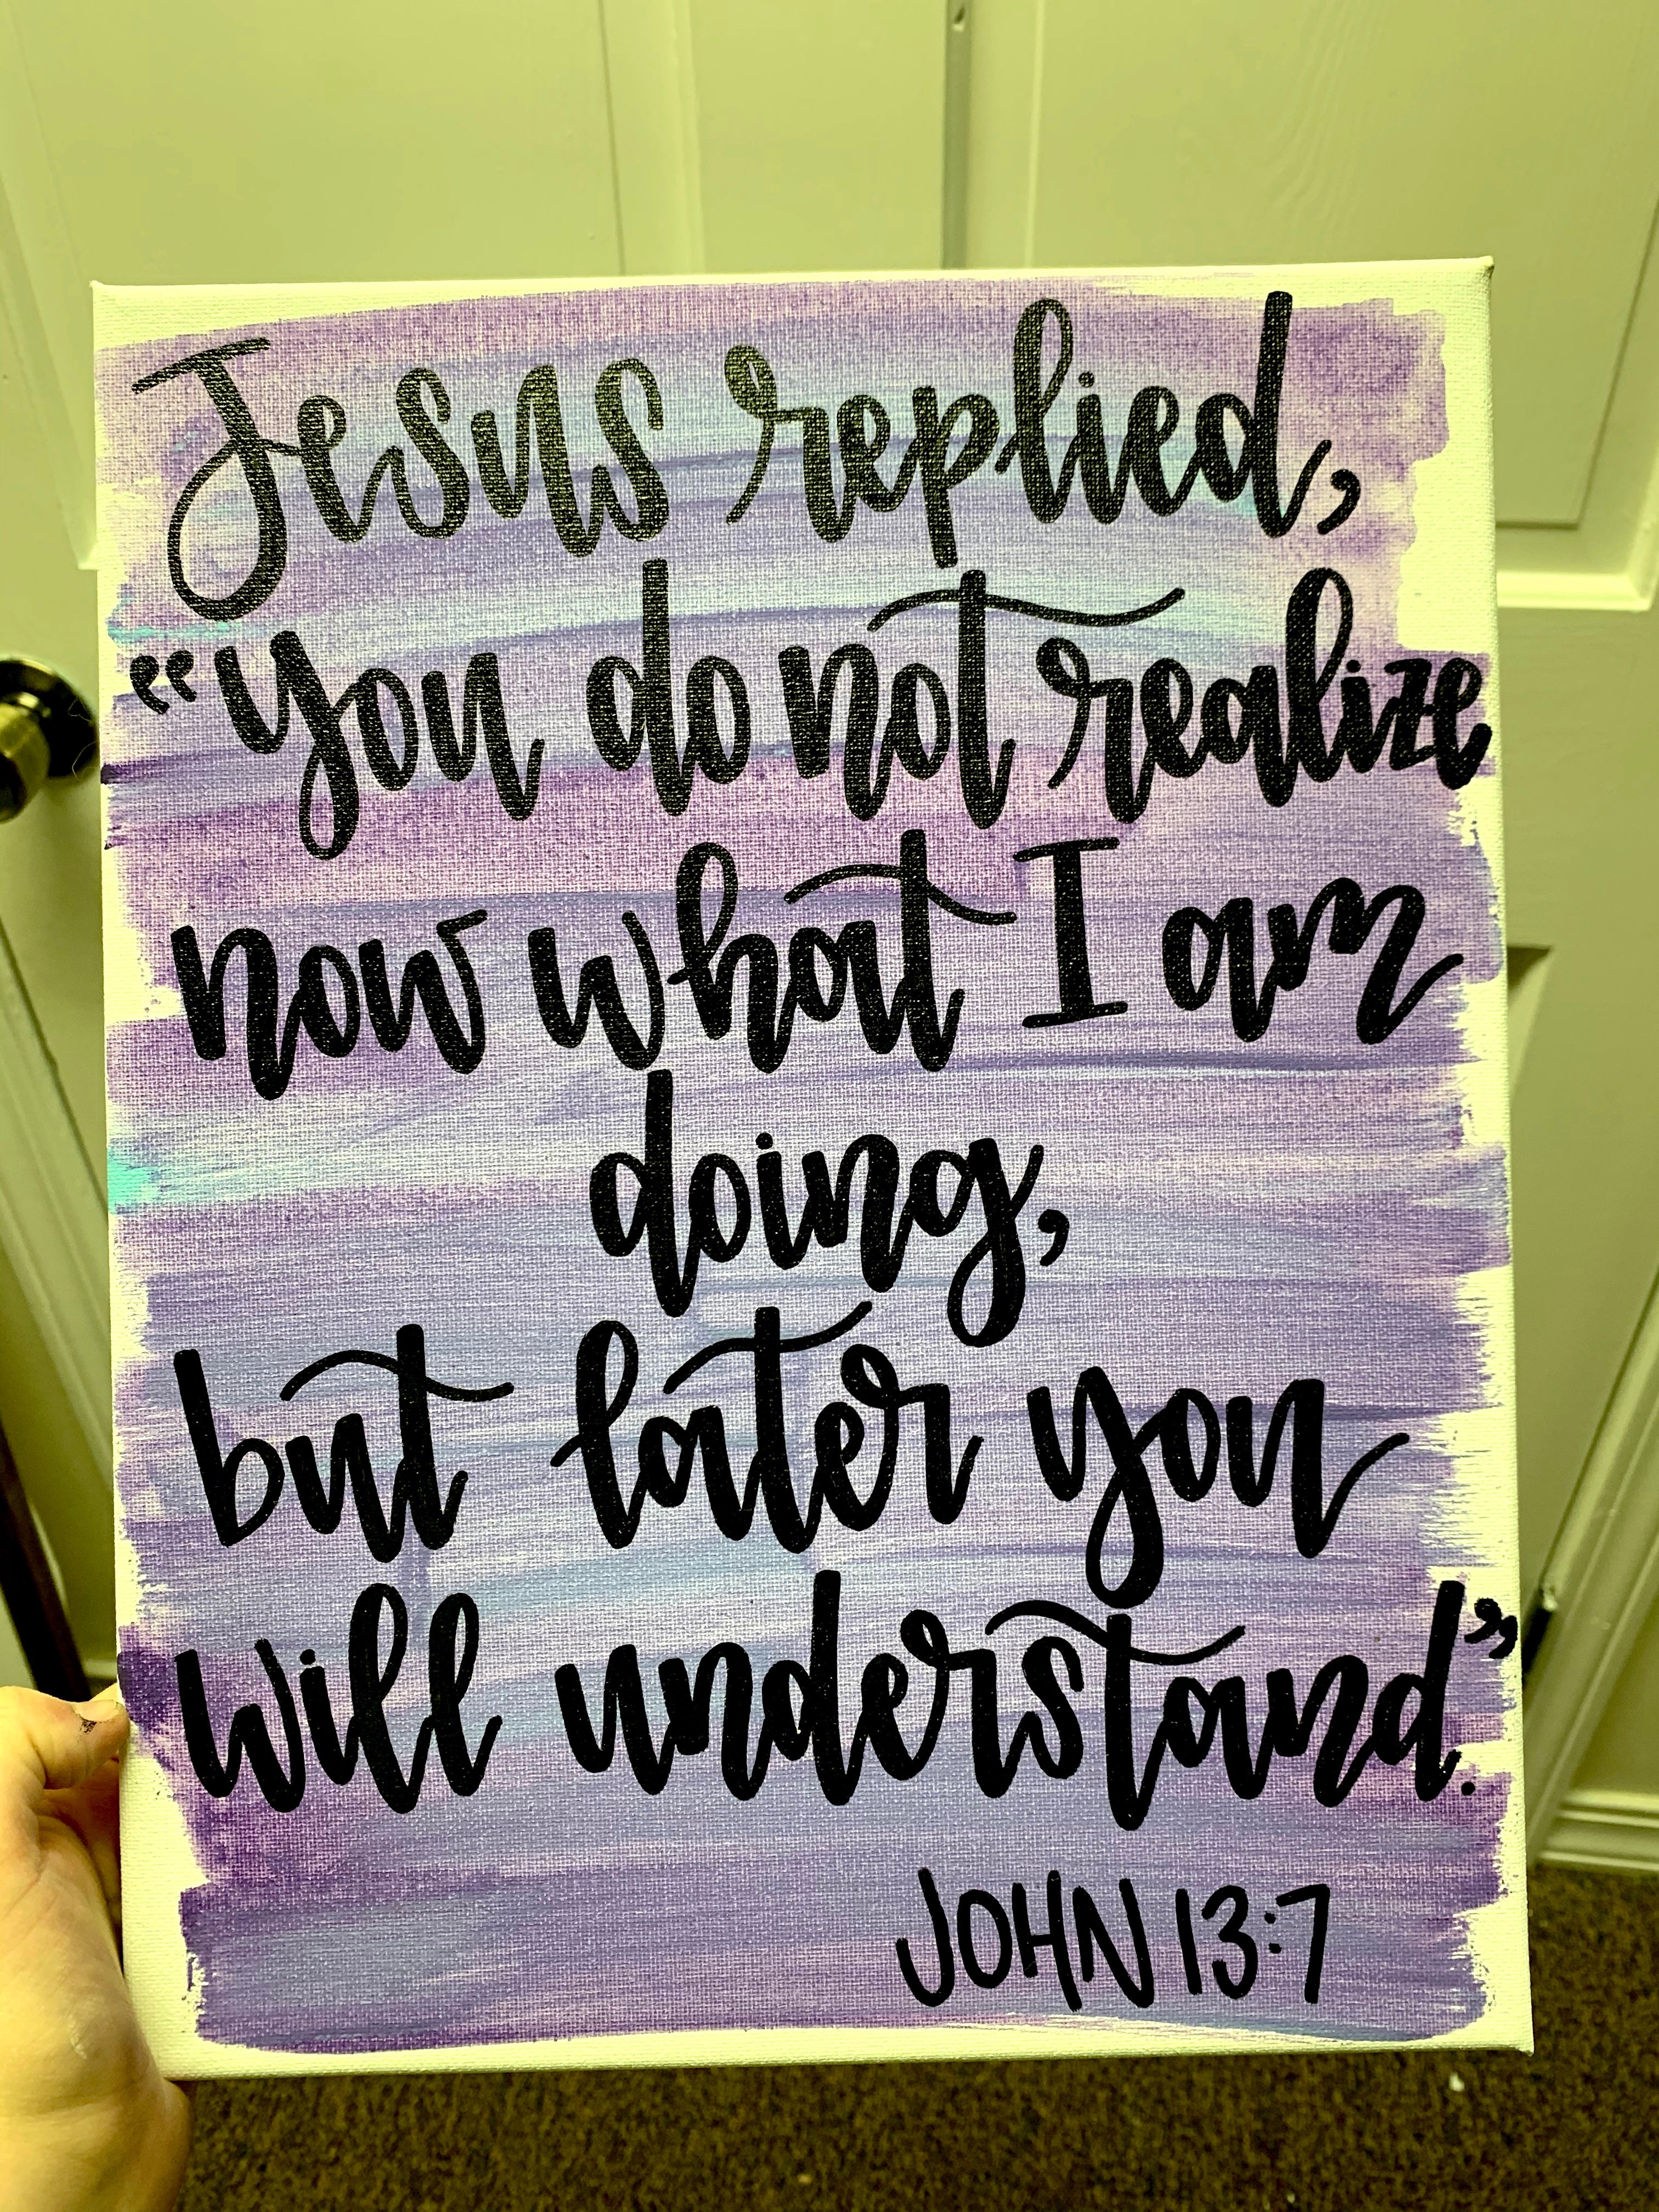 Jesus replied,
“you do not realize
now what I am
doing,
but later you
will understand.”
JOHN 13:7